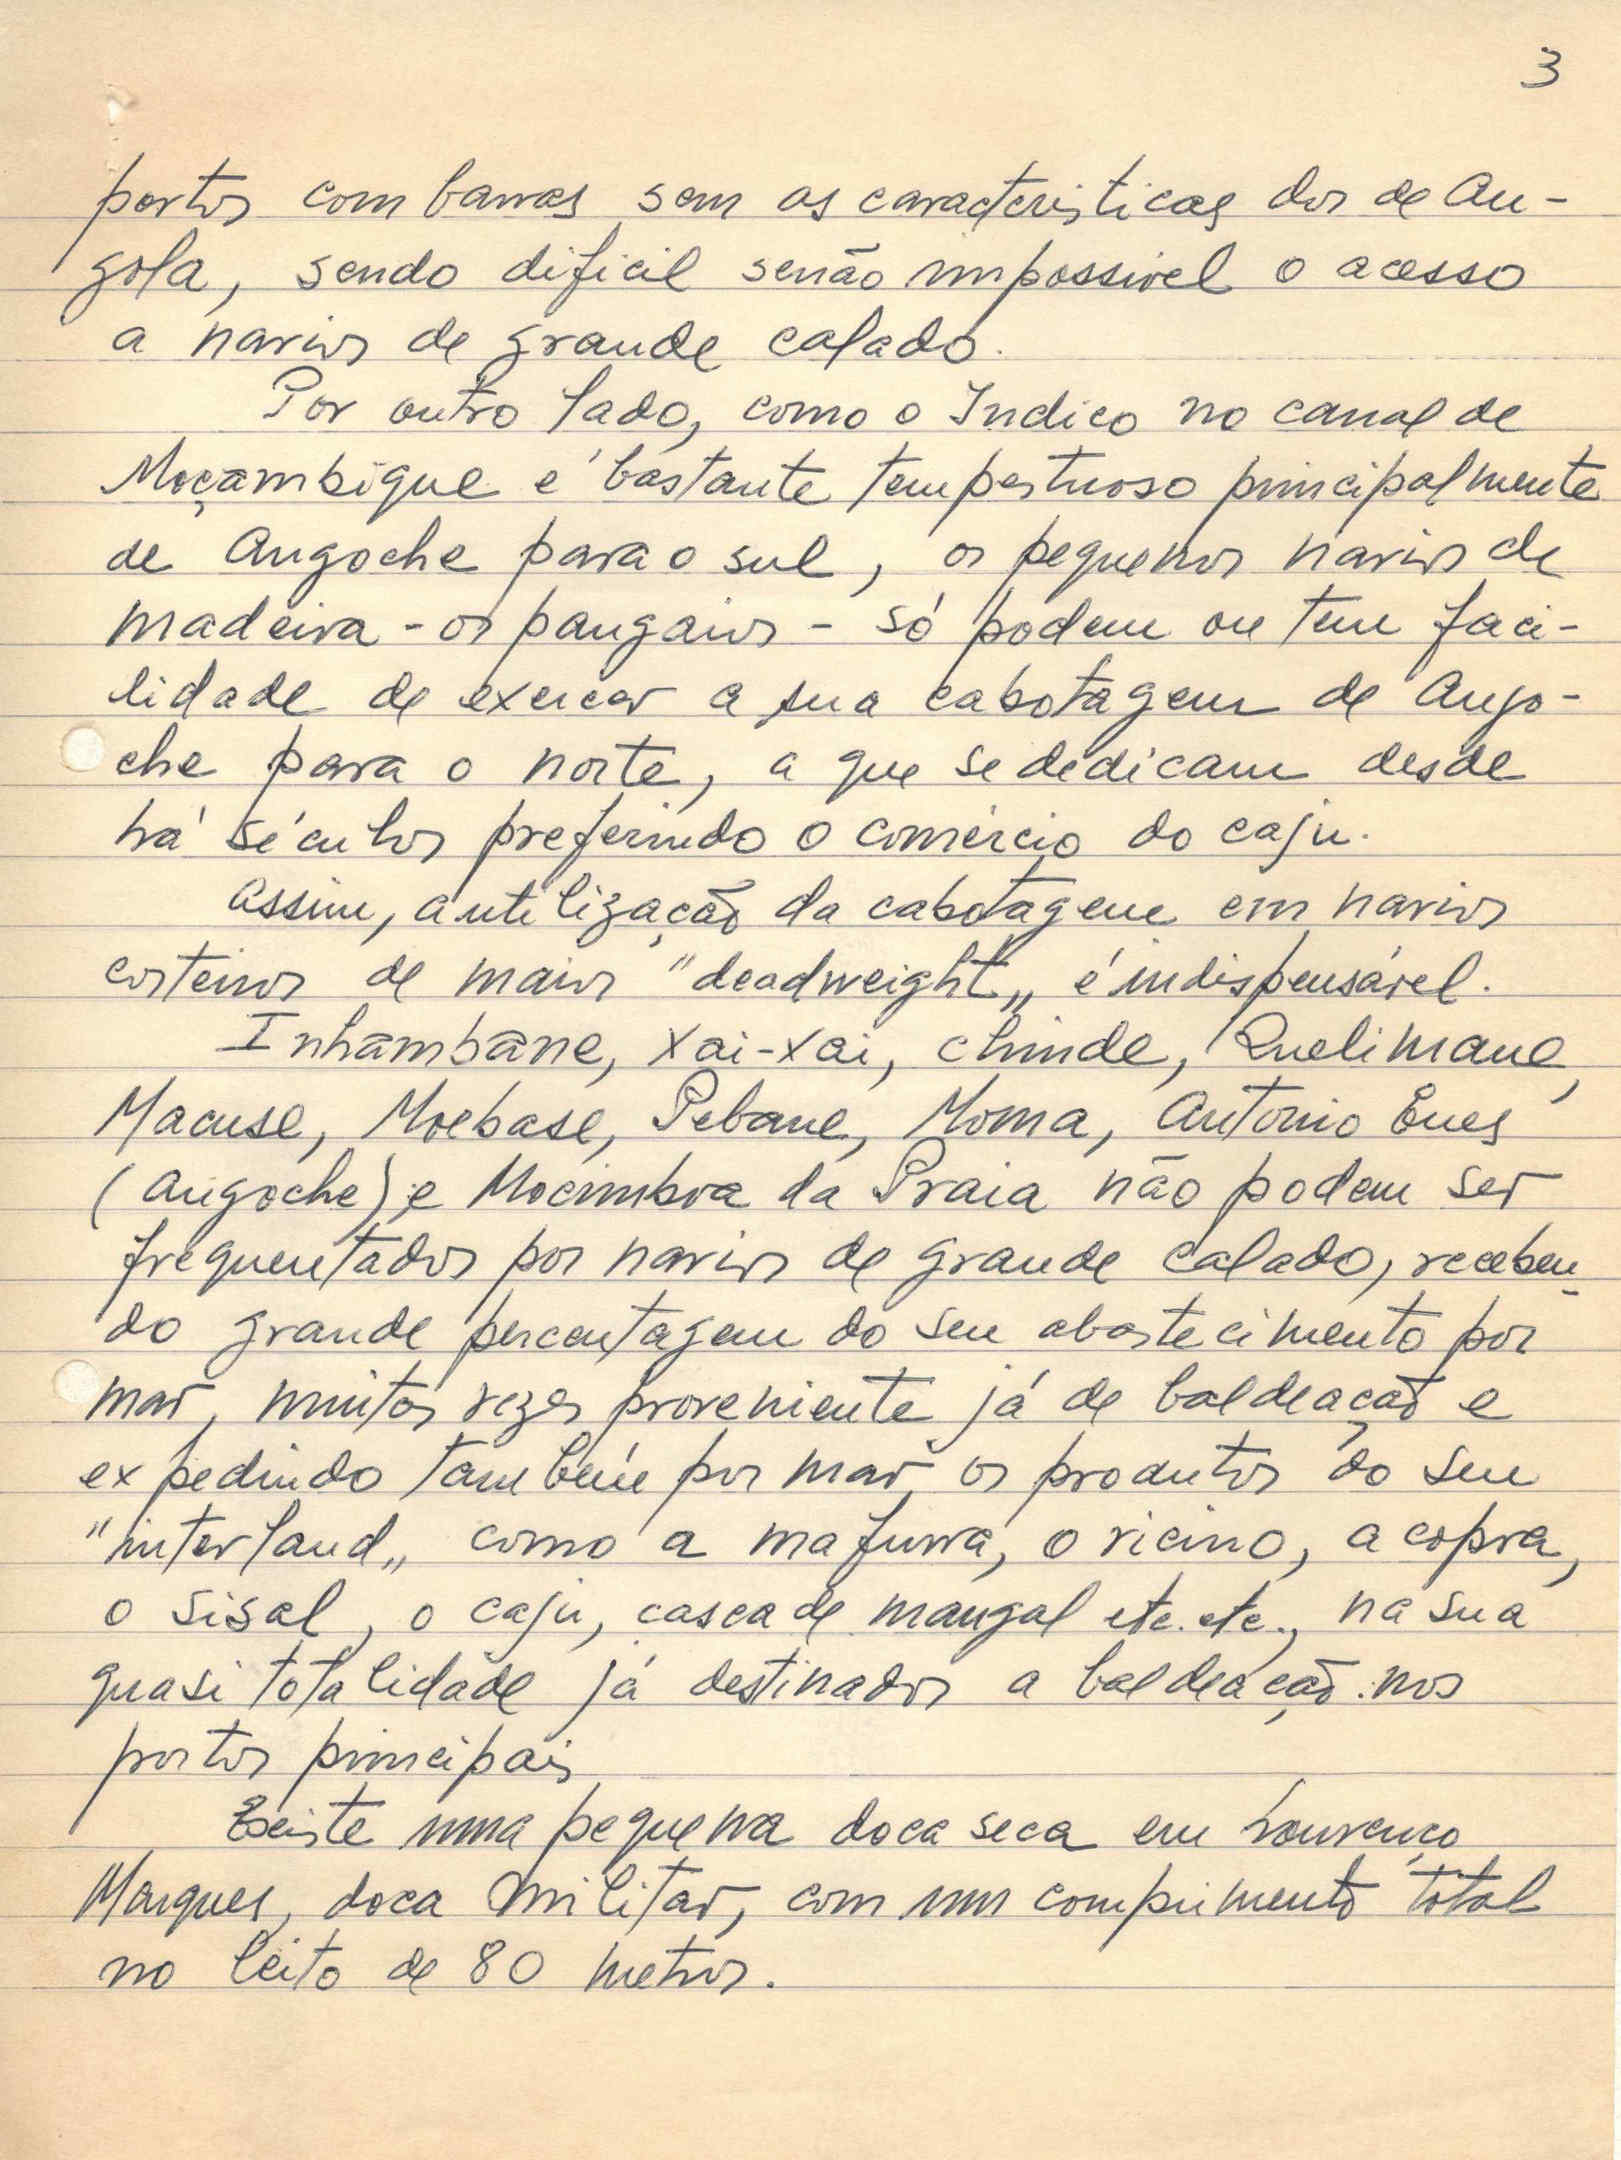 3
portos com barras sem as caracteristicas dos de An-
gola, sendo dificil senão impossivel o acesso
a navios de grande calado.
Por outro lado, como o Indico no canal de
Moçambique é bastante tempestuoso principalmente
de Angoche para o sul, os pequenos navios de
madeira - os pangaios - só podem ou tem faci-
lidade de exercer a sua cabotagem de Ango-
che para o norte, a que se dedicam desde
há séculos preferindo o comércio do caju.
Assim, a utilização da cabotagem em navios
costeiros de maior "deadweight„ é indispensável.
Inhambane, Xai-Xai, Chinde, Quelimane,
Macuse, Moebase, Pebane, Moma, Antonio Enes
(Angoche) e Mocimboa da Praia não podem ser
frequentados por navios de grande calado, receben-
do grande percentagem do seu abastecimento por
mar, muitas vezes proveniente já de baldeação e
expedindo também por mar os produtos do seu
"interland„ como a mafurra, o ricino, a copra,
o sisal, o caju, casca de mangal etc. etc., na sua
quasi totalidade já destinados a baldeação nos
portos principais
Existe uma pequena doca seca em Lourenço
Marques, doca militar, com um comprimento total
no leito de 80 metros.